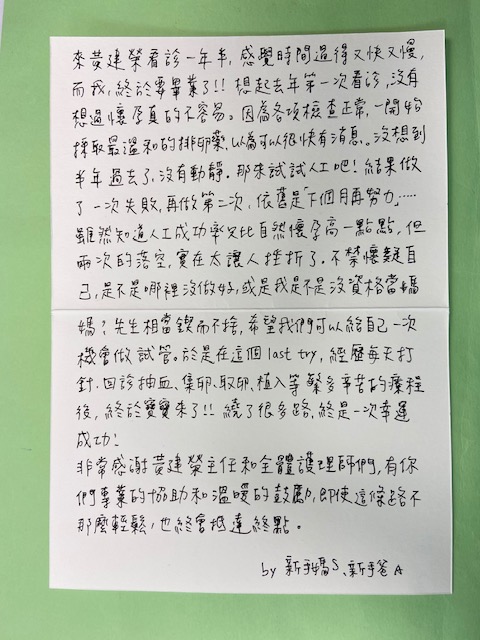 來黃建榮看診一年半，感覺時間過得又快又慢，
而我，終於要畢業了!! 想起去年第一次看診，沒有
想過懷孕真的不容易。因為各項檢查正常，一開始
採取最溫和的排卵藥，以為可以很快有消息。沒想到
半年過去了，沒有動靜。那來試試人工吧！結果做
了一次失敗，再做第二次，依舊是「下個月再努力」……
雖然知道人工成功率只比自然懷孕高一點點，但
兩次的落空，實在太讓人挫折了。不禁懷疑自
己，是不是哪裡沒做好，或是我是不是沒資格當媽
媽？先生相當鍥而不捨，希望我們可以給自己一次
機會做試管。於是在這個last try，經歷每天打
針、回診抽血、集卵、取卵、植入等繁多辛苦的療程
後，終於寶寶來了!! 繞了很多路，終是一次幸運
成功！
非常感謝黃建榮主任和全體護理師們，有你
們專業的協助和溫暖的鼓勵，即使這條路不
那麼輕鬆，也終會抵達終點。
by 新手媽S、新手爸A